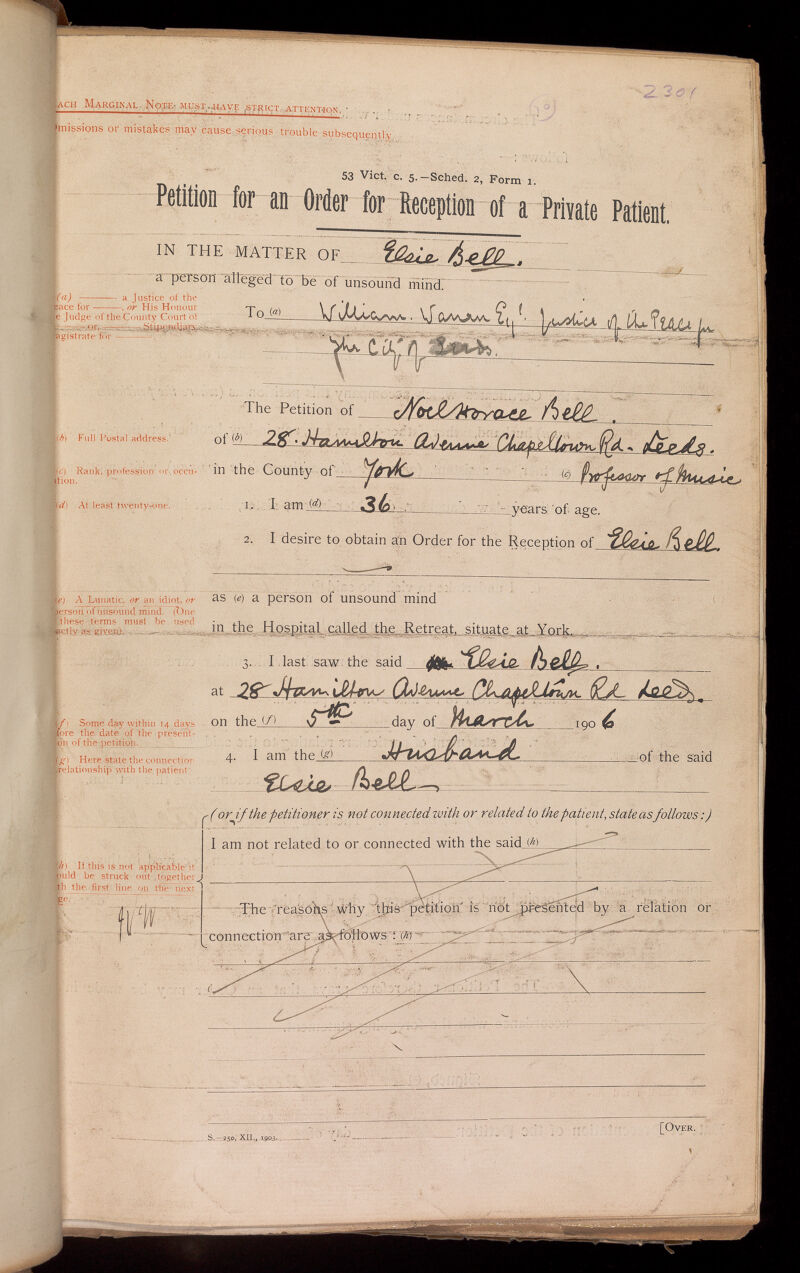 2301
ACH MARGINAL NOTE MUST HAVE STRICT ATTENTION.
missions or mistakes may cause serious trouble subsequently.
53 Vict. c. 5.—Sched. 2, Form 1.
Petition for an Order for Reception of a Private Patient.
IN THE MATTER OF Elsie Bell.
a person alleged to be of unsound mind.
(a) ——— a Justice of the
eace for ———, or His Honour
e Judge of the County Court of
——— or, ——— Stipendiary
agistrate for ———
To (a) William Warren Esqr. Justice of the Peace for
the City of Leeds.
The Petition of Noel Horace Bell.
(b) Full Postal address.
of (b) 28. Hamilton Avenue Chapeltown Rd. Leeds.
(c) Rank, profession or occu-
ation.
in the County of York (c) Professor of Music
(d) At least twenty-one.
1. I am (d) 36 years of age.
2. I desire to obtain an Order for the Reception of Elsie Bell
(e) A Lunatic, or an idiot, or
person of unsound mind. (One
these terms must be used
actly as given).
as (e) a person of unsound mind
in the Hospital called the Retreat, situate at York.
3. I last saw the said Elsie Bell.
at 28 Hamilton Avenue Chapeltown Rd Leeds.
(f) Some day within 14 days
fore the date of the present-
on of the petition.
on the (f) 5th day of March 1906
(g) Here state the connection
relationship with the patient
4. I am the (g) Husband of the said
Elsie Bell
(or if the petitioner is not connected with or related to the patient, state as follows:)
I am not related to or connected with the said (h)
(h) If this is not applicable it
ould be struck out together
th the first line on the next
ge.
The reasons why this petition is not presented by a relation or
connection are as follows : (h)
S.—250, XII., 1903.
[OVER.